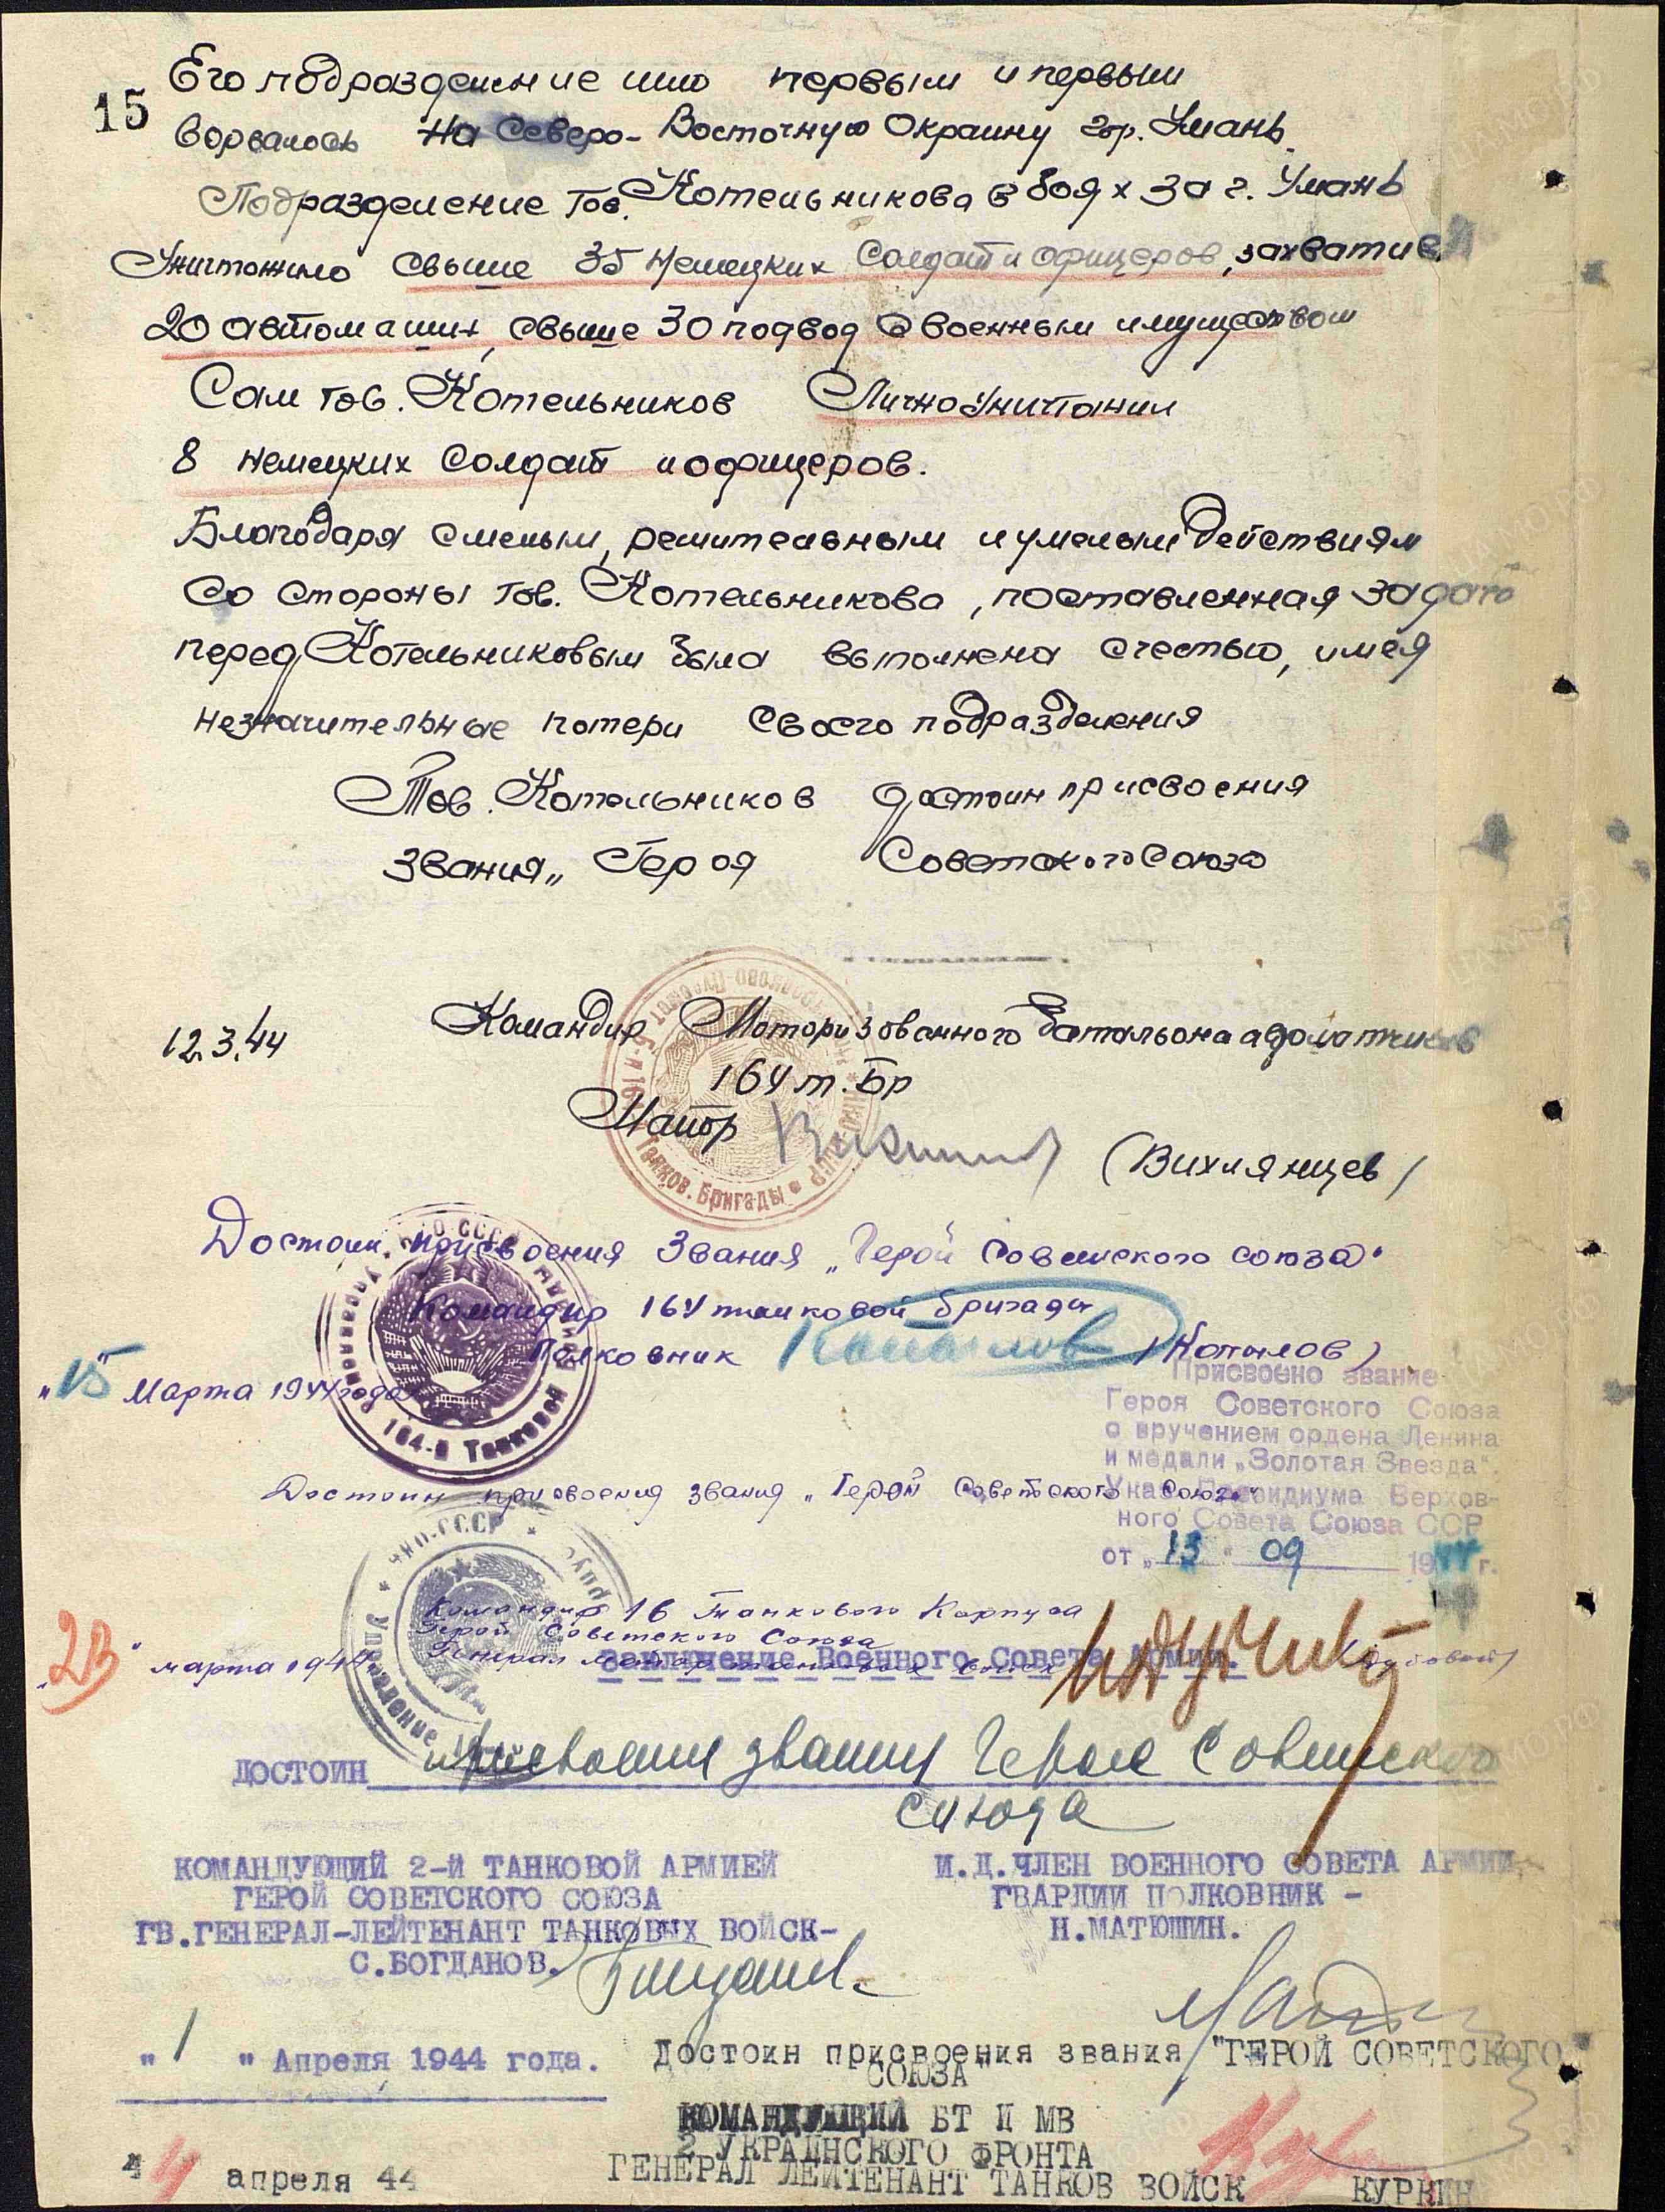 15
Его подразделение шло первым и первым
ворвалось на Северо-Восточную Окраину гор. Умань.
Подразделение тов. Котельникова в боях за г. Умань
Уничтожило свыше 35 немецких Солдат и офицеров, захватив
20 автомашин, свыше 30 подвод с военным имуществом
Сам тов. Котельников Лично уничтожил
8 немецких Солдат и офицеров.
Благодаря смелым, решительным и умелым действиям
со стороны тов. Котельникова, поставленная задача
перед Котельниковым была выполнена с честью, имея
незначительные потери своего подразделения
Тов. Котельников достоин присвоения
Звания „ Героя Советского Союза
12.3.44 Командир Моторизованного батальона автоматчиков
164 т. Бр
Майор (Вихлянцев)
Танков. Бригады
Достоин присвоения Звания „Герой Советского союза"
Командир 164 танковой бригады
Полковник Копылов (Копылов)
"15" Марта 1944 года
164-й Танковой
Присвоено звание
Героя Советского Союза
с вручением ордена Ленина
и медали „Золотая Звезда".
Указ Президиума Верхов-
ного Совета Союза ССР
от „ 13 " 09 1944 г.
Достоин присвоения звания „Герой Советского Союза"
НКО-СССР
Управление
Командир 16 Танкового Корпуса
Герой Советского Союза
Генерал майор танковых войск (Дубовой)
"23" марта 1944
Заключение Военного Совета Армии.
ДОСТОИН присвоения звания Героя Советского
Союза
КОМАНДУЮЩИЙ 2-Й ТАНКОВОЙ АРМИЕЙ
ГЕРОЙ СОВЕТСКОГО СОЮЗА
ГВ.ГЕНЕРАЛ-ЛЕЙТЕНАНТ ТАНКОВЫХ ВОЙСК-
С.БОГДАНОВ.
И.Д.ЧЛЕН ВОЕННОГО СОВЕТА АРМИИ
ГВАРДИИ ПОЛКОВНИК -
Н.МАТЮШИН.
" 1 " Апреля 1944 года.
Достоин присвоения звания "ГЕРОЙ СОВЕТСКОГО
СОЮЗА"
КОМАНДУЮЩИЙ БТ И МВ
2 УКРАИНСКОГО ФРОНТА
ГЕНЕРАЛ ЛЕЙТЕНАНТ ТАНКОВ ВОЙСК КУРКИН
4 апреля 44